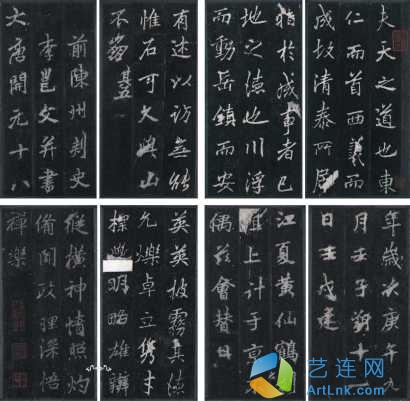 夫天之道也東
仁而首西義而
成故清泰所居
指於成事者已
地之德也川浮
而動岳鎮而安
有述以訪無能
惟石可久與山
不騫
前陳州刺史
李邕文并書
大唐開元十八
年歲次庚午九
月壬子朔十一
日壬戌建
江夏黃仙鶴
上計于京
偶茲會贊曰
英英披霧其德
允爍卓立雋才
標明略雄辯
縱橫神情照灼
備聞政理深悟
禪樂
艺连网
ArtLink.com